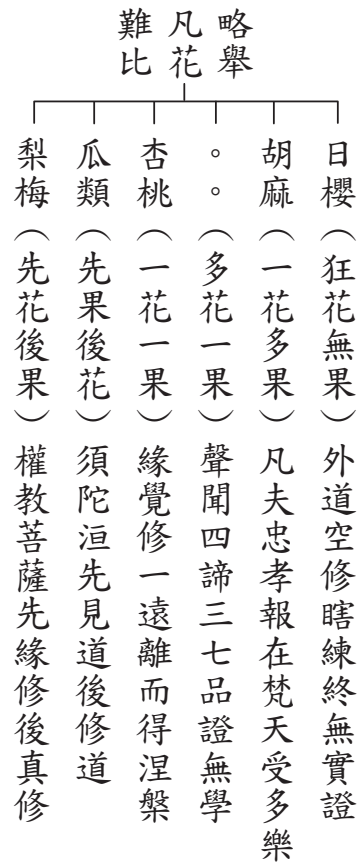 略舉
凡花
難比
日櫻（狂花無果）外道空修瞎練終無實證
胡麻（一花多果）凡夫忠孝報在梵天受多樂
。。（多花一果）聲聞四諦三七品證無學
杏桃（一花一果）緣覺修一遠離而得涅槃
瓜類（先果後花）須陀洹先見道後修道
梨梅（先花後果）權教菩薩先緣修後真修